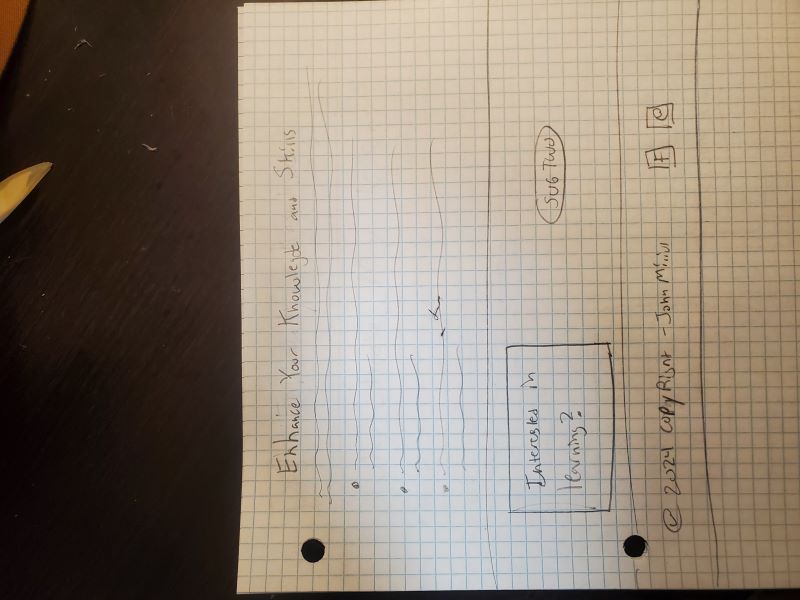 Enhance Your Knowlegde and Skills
Interested in
learning?
SUG TWO
© 2024 copyRight - John
F